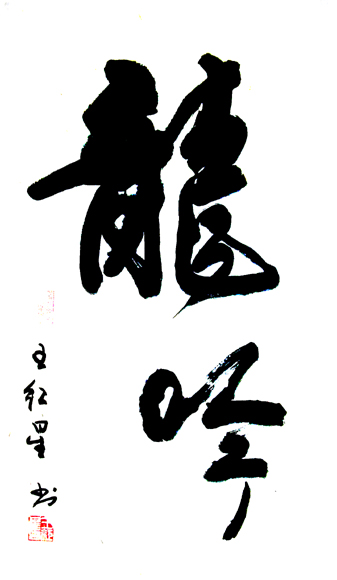 龍吟
王红星书